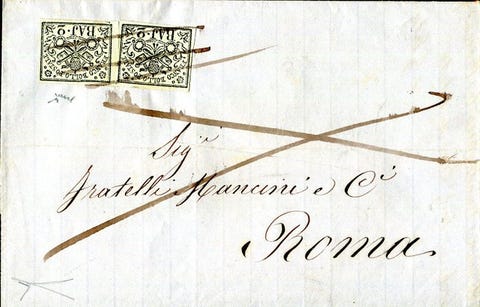 BAJ. 2 BAJ. 2
FRANCO BOLLO POSTALE FRANCO BOLLO POSTALE
Sigⁱ
Fratelli Mancini e Cⁱ
Roma